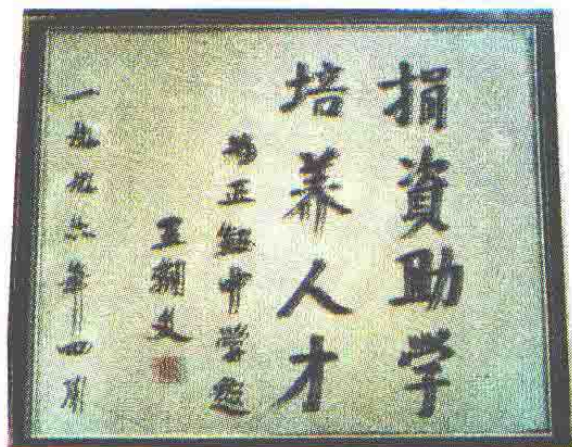 捐資助学
培养人才
为正韶中学题
王朝文
一九九六年四月